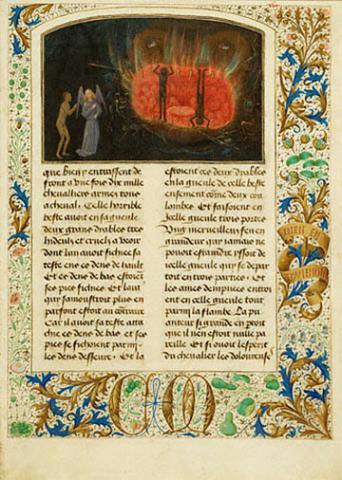 que bien y entrassent de
front a une fois dix mille
chevalliers armes tous
a cheval Celle horrible
beste avoit en sa gueule
deux grans dyables tres
hideulx et cruelz a veoir
dont lun avoit fichie sa
teste ens es dens de hault
Et es dens de bas estoient
ses piez fichies Et lautre
qui se monstroit plus en
parfont estoit au contraire
Car il avoit sa teste atta
chie es dens de bas et ses
piez se fichoient parmy
les dens desseure Et la
estoient ces deux dyables
en la gueule de celle beste
ensement come deux cou
lombes Et faisoient en
icelle gueule trois portes
Ung merveilleux feu en
grandeur qui jamais ne
pouoit estaindre yssoit de
celle gueule qui se depar
toit en trois parties Et
les ames dempnees entroi
ent en celle gueule tout
parmy la flambe La pu
anteur si grande en yssoit
que il nen estoit nulle pa
reille Et si ouoit lesperit
du chevalier les doloureuses